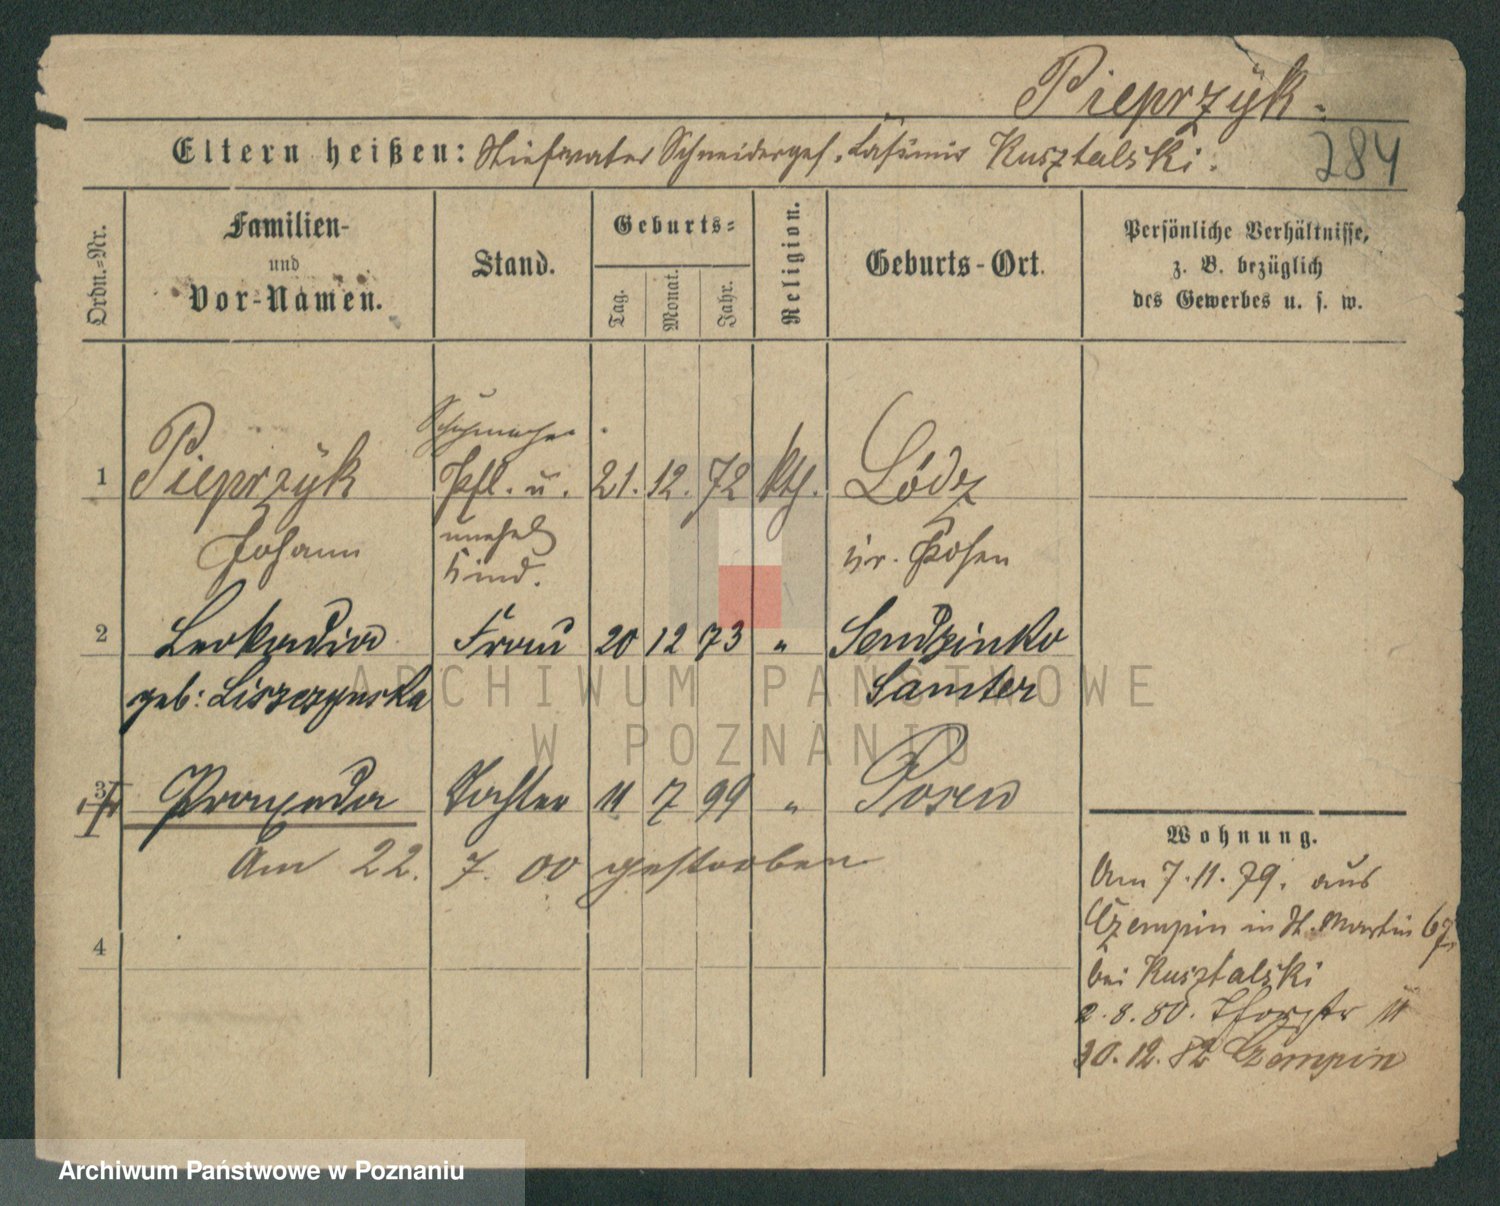 Pieprzÿk.
284
Eltern heißen: Stiefvater Schneiderges. Casimir Kusztalski.
Ordn.-Nr.
Familien-
und
Vor-Namen.
Stand.
Geburts-
Tag.
Monat.
Jahr.
Religion.
Geburts-Ort.
Persönliche Verhältnisse,
z. B. bezüglich
des Gewerbes u. s. w.
Schuhmacher
1 Pieprzÿk Pfl. u. 21. 12. 72 kth. Lódz
Johann unehel Kr. Posen
Kind.
2 Leokadia Frau 20 12 73 " Sendzinko
geb: Liszczynska Samter
3 Praxeda Tochter 11 7 99 " Posen
Am 22. 7. 00 gestorben
4
Wohnung.
Am 7.11.79. aus
Czempin in St. Martin 67
bei Kusztalski
2.8.80. Thorstr 11
30.12.82 Czempin
ARCHIWUM PAŃSTWOWE
W POZNANIU
Archiwum Państwowe w Poznaniu